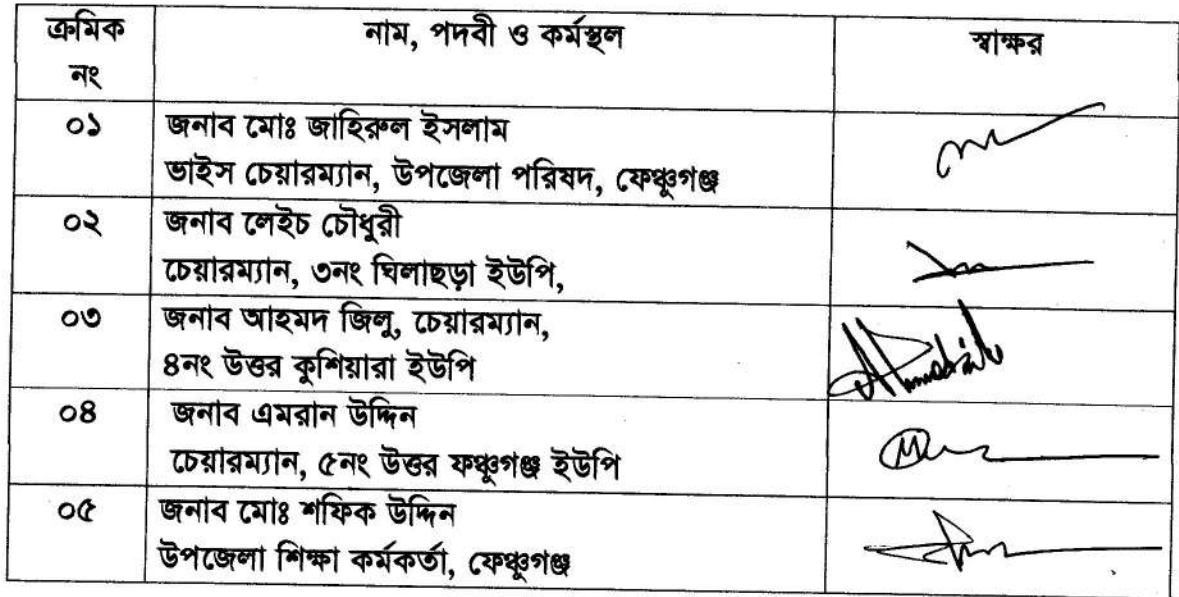 ক্রমিক নং নাম, পদবী ও কর্মস্থল স্বাক্ষর
০১ জনাব মোঃ জাহিরুল ইসলাম
ভাইস চেয়ারম্যান, উপজেলা পরিষদ, ফেঞ্চুগঞ্জ
০২ জনাব লেইচ চৌধুরী
চেয়ারম্যান, ৩নং ঘিলাছড়া ইউপি,
০৩ জনাব আহমদ জিলু, চেয়ারম্যান,
৪নং উত্তর কুশিয়ারা ইউপি
০৪ জনাব এমরান উদ্দিন
চেয়ারম্যান, ৫নং উত্তর ফঞ্চুগঞ্জ ইউপি
০৫ জনাব মোঃ শফিক উদ্দিন
উপজেলা শিক্ষা কর্মকর্তা, ফেঞ্চুগঞ্জ